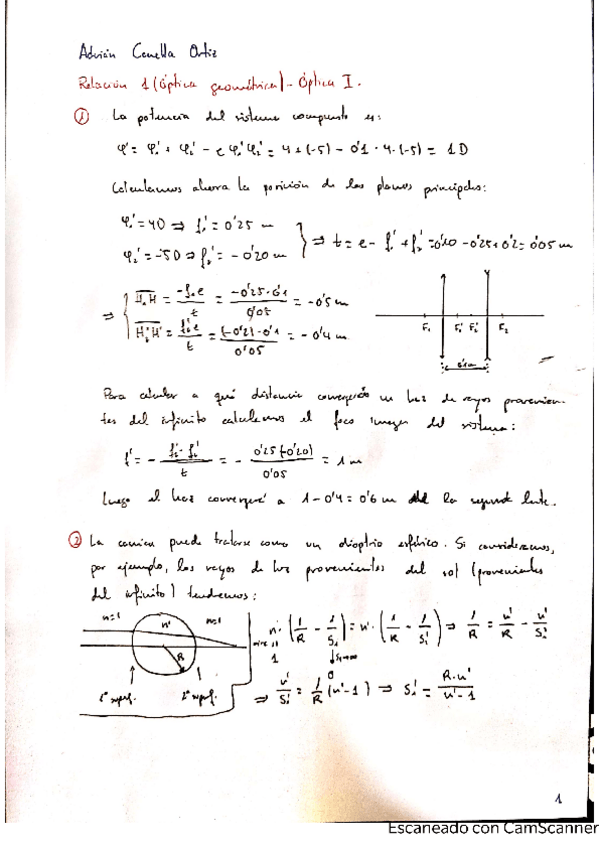 Adrián Canella Ortiz
Relación 1 (Óptica geométrica) - Óptica I.
① La potencia del sistema compuesto es:
φ' = φ₁' + φ₂' - e φ₁'φ₂' = 4 + (-5) - 0'1 · 4 · (-5) = 1 D
Calculamos ahora la posición de los planos principales:
φ₁' = 4D ⇒ f₁' = 0'25 m
φ₂' = -5D ⇒ f₂' = -0'20 m
⇒ t = e - f₁' + f₂' = 0'10 - 0'25 + 0'2 = 0'05 m
⇒ H₁H = -f₁e / t = -0'25 · 0'1 / 0'05 = -0'5 m
H₂'H' = f₂'e / t = (-0'2) · 0'1 / 0'05 = -0'4 m
F₁ F₁' F₂' F₂
0'1m
Para calcular a qué distancia convergerá un haz de rayos provenien-
tes del infinito calculamos el foco imagen del sistema:
f' = - f₁' · f₂' / t = - 0'25 (-0'20) / 0'05 = 1 m
Luego el haz convergerá a 1 - 0'4 = 0'6 m de la segunda lente.
② La canica puede tratarse como un dioptrio esférico. Si consideramos,
por ejemplo, los rayos de luz provenientes del sol (provenientes
del infinito) tendremos:
n=1 n' n=1
R
1ª superf. 2ª superf.
n · (1/R - 1/S₁) = n' · (1/R - 1/S₁') ⇒ 1/R = n'/R - n'/S₁'
1 ↓ S₁→∞
0
⇒ n'/S₁' = 1/R (n'-1) ⇒ S₁' = R·n' / n'-1
1
Escaneado con CamScanner